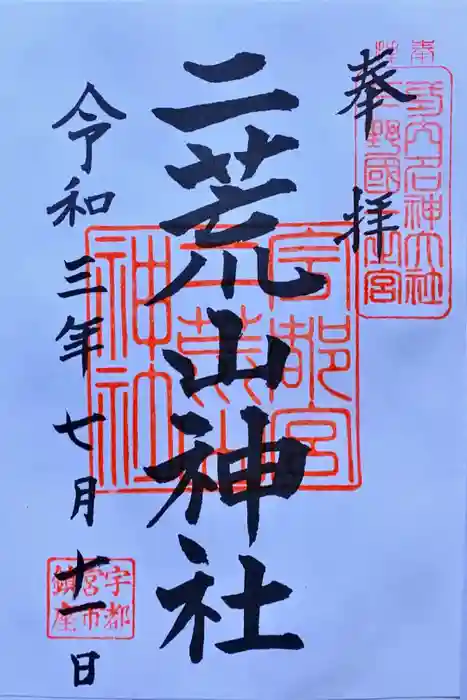 奉拝
式内名神大社
下野國一之宮
奉拝
二荒山神社
宇都宮
二荒山
神社
令和三年七月十一日
宇都
宮市
鎮座